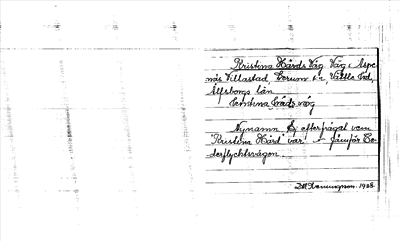 Kristina Hårds Väg. Väg i Aspe
näs Villastad, Lerum sn, Vättle hd,
Älfsborgs län
Kristina Hårds väg
Nynamn Ej efterfrågat vem
"Kristina Hård" var! – Jämför Ce-
derflychtsvägen
1938